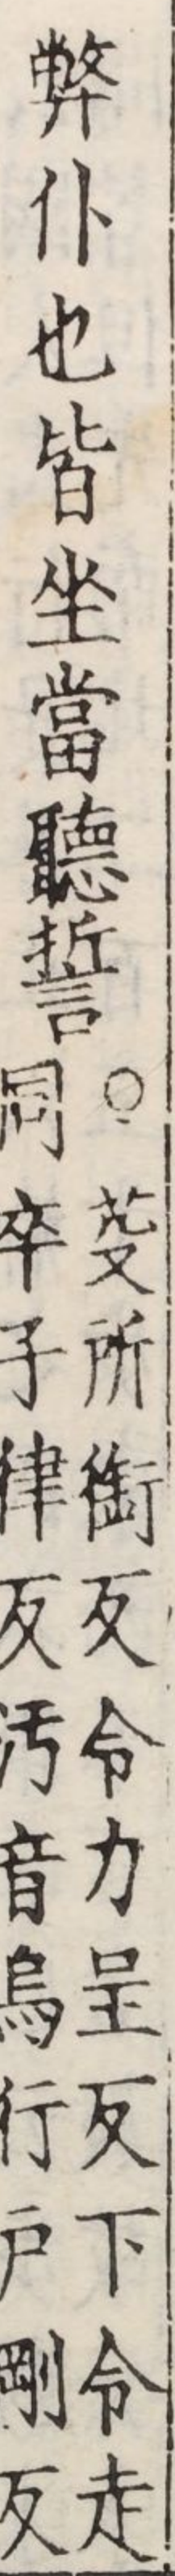 弊仆也皆坐當聽誓
○芟所銜反令力呈反下令走
同卒子律反汚音烏行戶剛反